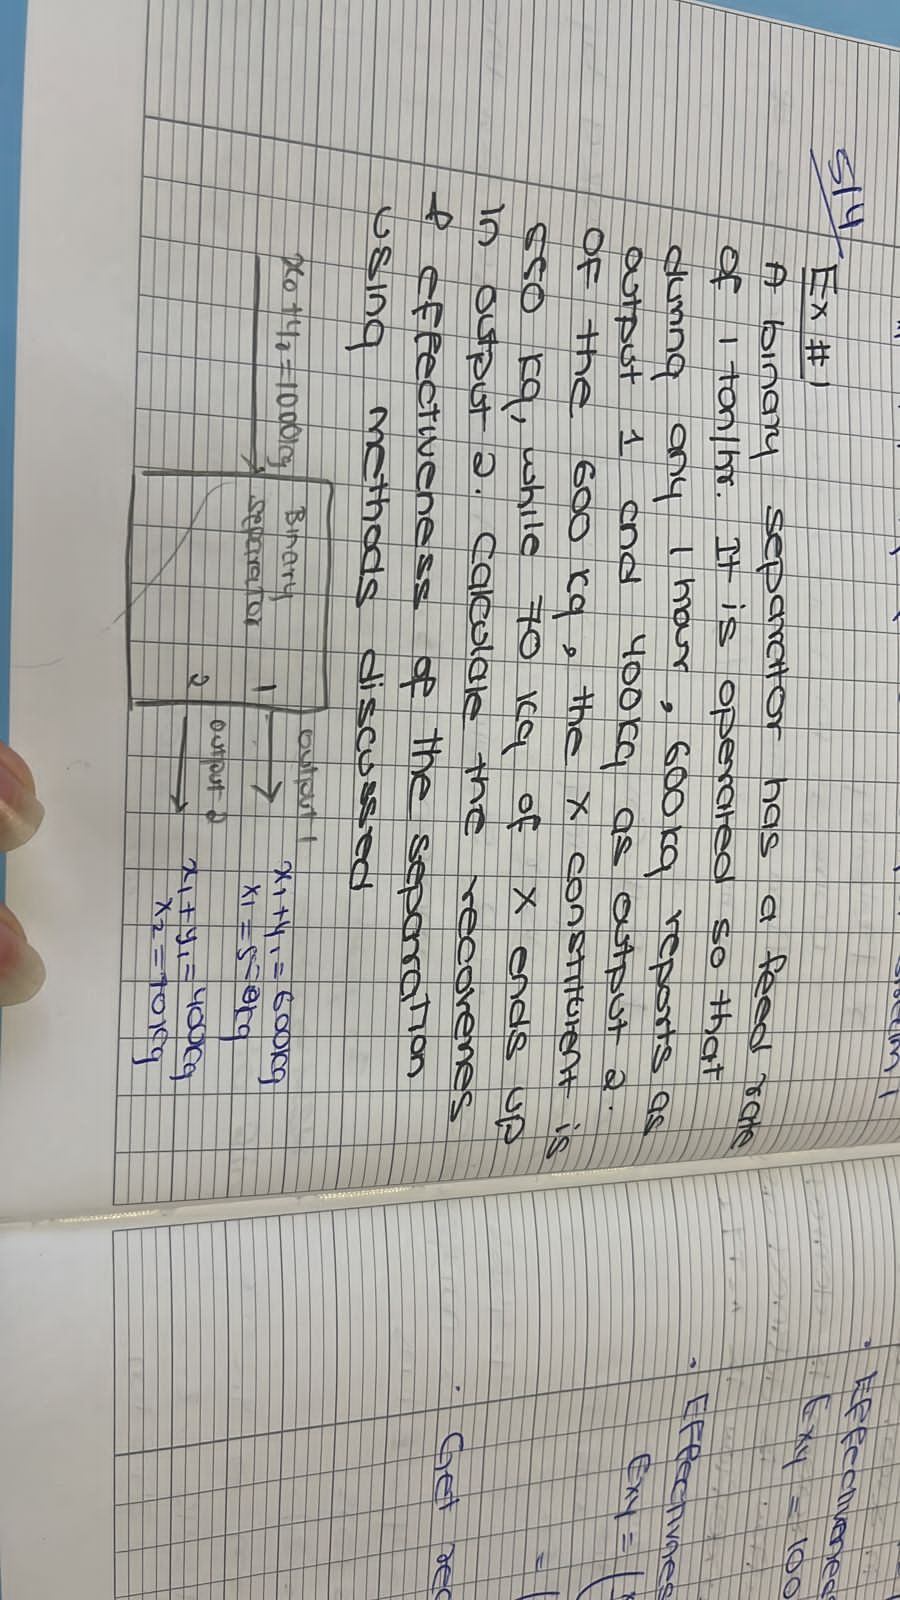 5/4
Ex #1
A binary separator has a feed rate
of 1 ton/hr. It is operated so that
during any 1 hour, 600 kg reports as
output 1 and 400kg as output 2.
Of the 600 kg, the x constituent is
550 kg, while 70 kg of x ends up
in output 2. Calculate the recoveries
& effectiveness of the separation
using methods discussed
Binary
separator
1
2
output 1
output 2
x1 + y1 = 600kg
x1 + y1 = 400kg
x2 = 70kg
Effectiveness
Exy = 100
Exy = (
= (
Get rec